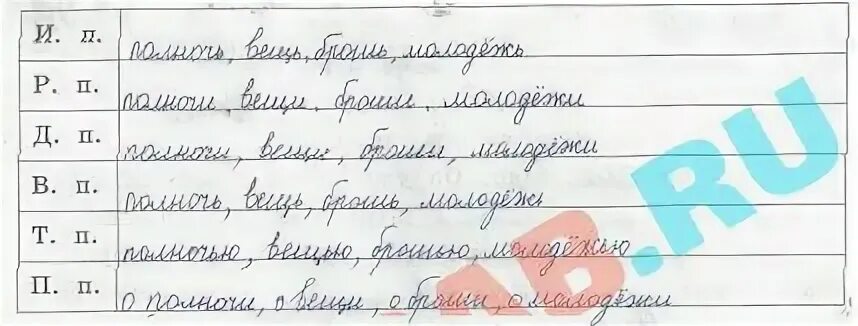 И. п. полночь, вещь, брошь, молодёжь
Р. п. полночи, вещи, броши, молодёжи
Д. п. полночи, вещи, броши, молодёжи
В. п. полночь, вещь, брошь, молодёжь
Т. п. полночью, вещью, брошью, молодёжью
П. п. о полночи, о вещи, о броши, о молодёжи
AB.RU